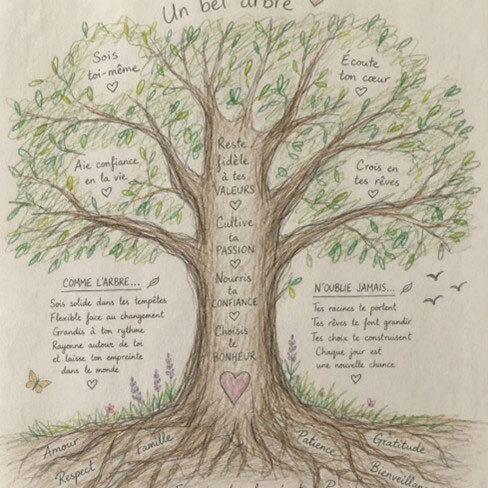 Un bel arbre
Sois
toi-même
Écoute
ton cœur
Aie confiance
en la vie
Crois en
tes rêves
Reste
fidèle
à tes
VALEURS
Cultive
ta
PASSION
Nourris
ta
CONFIANCE
Choisis
le
BONHEUR
COMME L'ARBRE...
Sois solide dans les tempêtes
Flexible face au changement
Grandis à ton rythme
Rayonne autour de toi
et laisse ton empreinte
dans le monde
N'OUBLIE JAMAIS...
Tes racines te portent
Tes rêves te font grandir
Tes choix te construisent
Chaque jour est
une nouvelle chance
Amour
Famille
Patience
Gratitude
Respect
Bienveillance